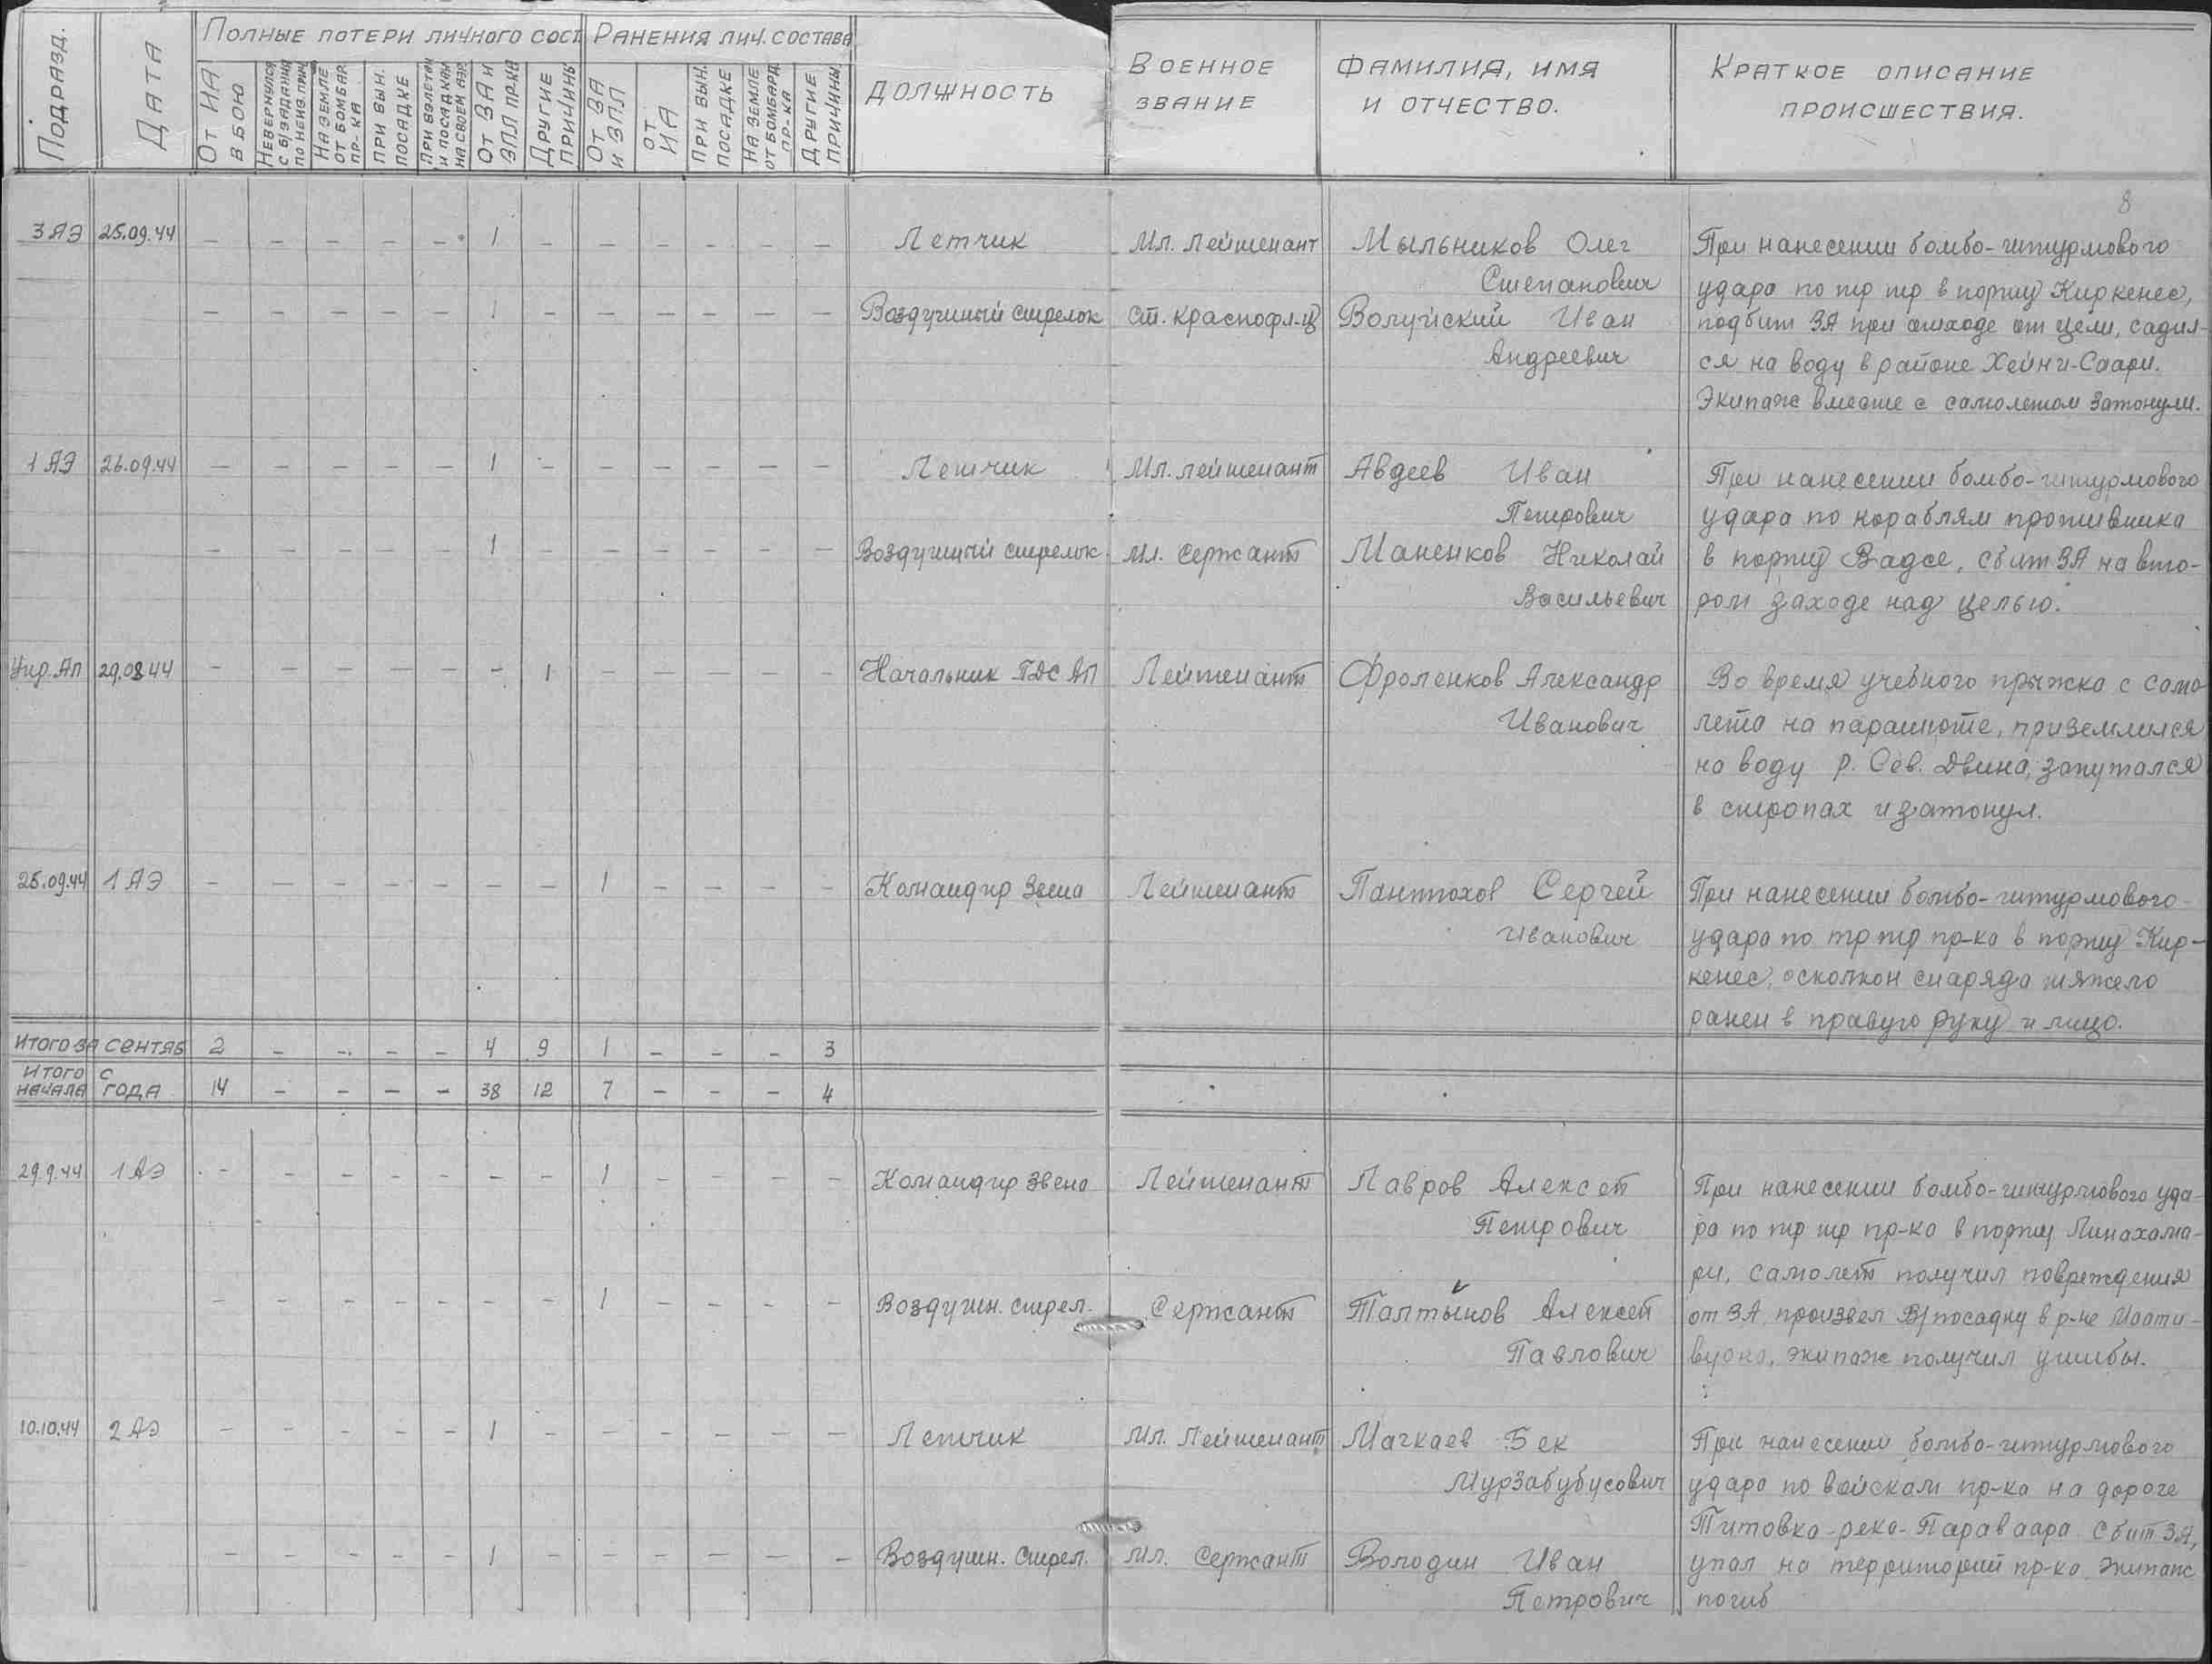 Подразд.
Дата
Полные потери личного сост
От ИА в бою
Невернулся с б/задания по неизв. прич
На земле от бомбар. пр-ка
При вын. посадке
При взлете и посадках на своем аэр.
От ЗА и ЗПЛ пр-ка
Другие причины
Ранения лич. состава
От ЗА и ЗПЛ
от ИА
При вын. посадке
На земле от бомбард. пр-ка
Другие причины
Должность
Военное звание
Фамилия, имя и отчество.
Краткое описание происшествия.
8
3 АЭ 25.09.44 – – – – – 1 – – – – – – Летчик Мл. Лейтенант Мыльников Олег При нанесении бомбо-штурмового
Степанович удара по тр тр в порту Киркенес,
– – – – – 1 – – – – – – Воздушный стрелок Ст. краснофл-ц Волуйский Иван подбит ЗА при отходе от цели, садил-
Андреевич ся на воду в районе Хейни-Саари.
Экипаж вместе с самолетом затонули.
1 АЭ 26.09.44 – – – – – 1 – – – – – – Летчик Мл. лейтенант Авдеев Иван При нанесении бомбо-штурмового
Петрович удара по кораблям противника
– – – – – 1 – – – – – – Воздушный стрелок Мл. Сержант Маненков Николай в порту Вадсе, сбит ЗА на вто-
Васильевич ром заходе над целью.
Упр. Ап 29.08.44 – – – – – – 1 – – – – – Начальник ПДС АП Лейтенант Фроленков Александр Во время учебного прыжка с само
Иванович лета на парашюте, приземлился
на воду р. Сев. Двина, запутался
в стропах и затонул.
25.09.44 1 АЭ – – – – – – – 1 – – – – Командир Звена Лейтенант Пантюхов Сергей При нанесении бомбо-штурмового
Иванович удара по тр тр пр-ка в порту Кир-
кенес, осколком снаряда тяжело
ранен в правую руку и лицо.
Итого за сентяб 2 – – – – 4 9 1 – – – 3
Итого с начала года 14 – – – – 38 12 7 – – – 4
29.9.44 1 АЭ – – – – – – – 1 – – – – Командир Звена Лейтенант Лавров Алексей При нанесении бомбо-штурмового уда-
Петрович ра по тр тр пр-ка в порту Линахама-
ри, самолет получил повреждения
– – – – – – – 1 – – – – Воздушн. стрел. Сержант Талтынов Алексей от ЗА, произвел В/посадку в р-не Маати-
Павлович вуоно, экипаж получил ушибы.
10.10.44 2 АЭ – – – – – 1 – – – – – – Летчик Мл. Лейтенант Мачкаев Бек При нанесении бомбо-штурмового
Мурзабубусович удара по войскам пр-ка на дороге
Титовка-река-Параваара сбит ЗА,
– – – – – 1 – – – – – – Воздушн. Стрел. Мл. Сержант Володин Иван упал на территорий пр-ка Экипаж
Петрович погиб